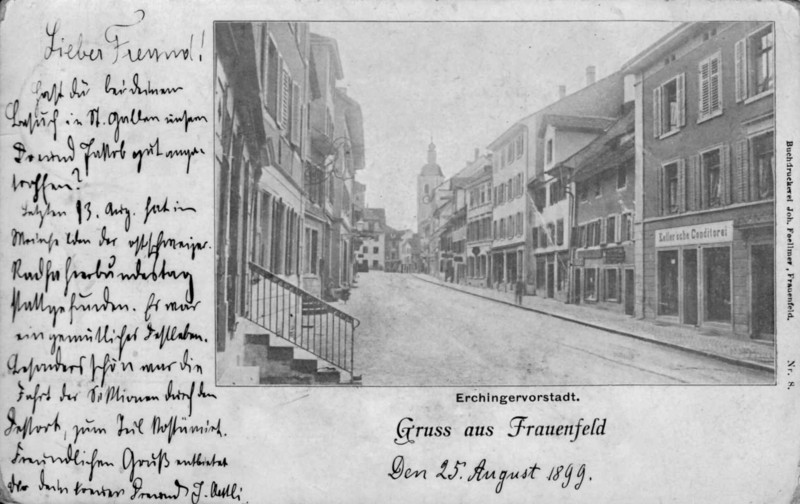 Lieber Freund!
hast du bei deinem
Besuch in St. Gallen unsern
Freund Jakob gut ange-
troffen?
Letzten 13. Aug. hat in
der ostschweizer.
Radfahrerbundestag
stattgefunden. Es war
ein gemütliches Festleben.
Besonders schön war die
Fahrt der Sektionen durch den
Festort, zum Teil kostümirt.
Freundlichen Gruß entbietet
Dir dein Freund J.
Keller'sche Conditorei
Erchingervorstadt.
Gruss aus Frauenfeld
Den 25. August 1899.
Buchdruckerei Joh. Foellmer, Frauenfeld.
Nr. 8.